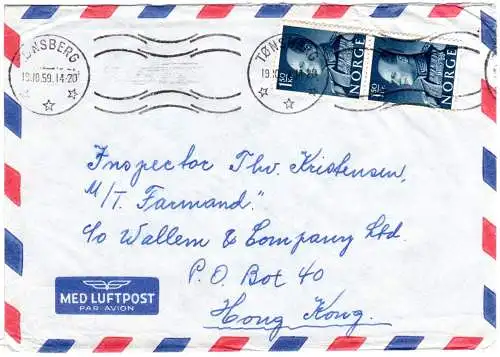 TØNSBERG
19.10.59.14-20
TØNS
19.10
14-20
1.50 KR
NORGE
1.50 KR
NORGE
Inspector Thv. Kristensen,
M/T. "Farmand"
c/o Wallem & Company Ltd.
P.O. Box 40
Hong Kong.
MED LUFTPOST
PAR AVION